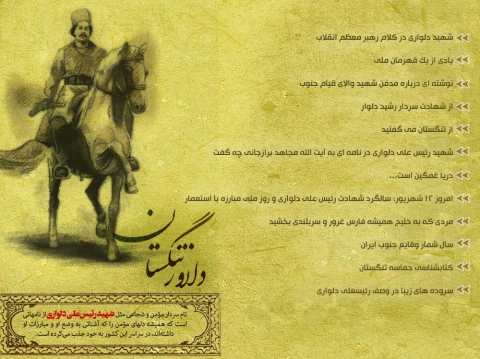 شهید دلواری در کلام رهبر معظم انقلاب
یادی از یك قهرمان ملی
نوشته ای درباره مدفن شهید والای قیام جنوب
از شهادت سردار رشید دلوار
از تنگستان می گفتید
شهید رئیس علی دلواری در نامه ای به آیت الله مجاهد برازجانی چه گفت
دریا غمگین است...
امروز ۱۲ شهریور؛ سالگرد شهادت رئیس علی دلواری و روز ملی مبارزه با استعمار
مردی که به خلیج همیشه فارس غرور و سربلندی بخشید
سال شمار وقایع جنوب ایران
کتابشناسی حماسه تنگستان
سروده های زیبا در وصف رئیسعلی دلواری
دلاور تنگستان
نام سردار مؤمن و شجاعی مثل شهید رئیس علی دلواری از نامهائی
است که همیشه دلهای مؤمن را که آشنائی به وضع او و مبارزات او
داشته‌اند، در سراسر این کشور به خود جلب می‌کرده است.